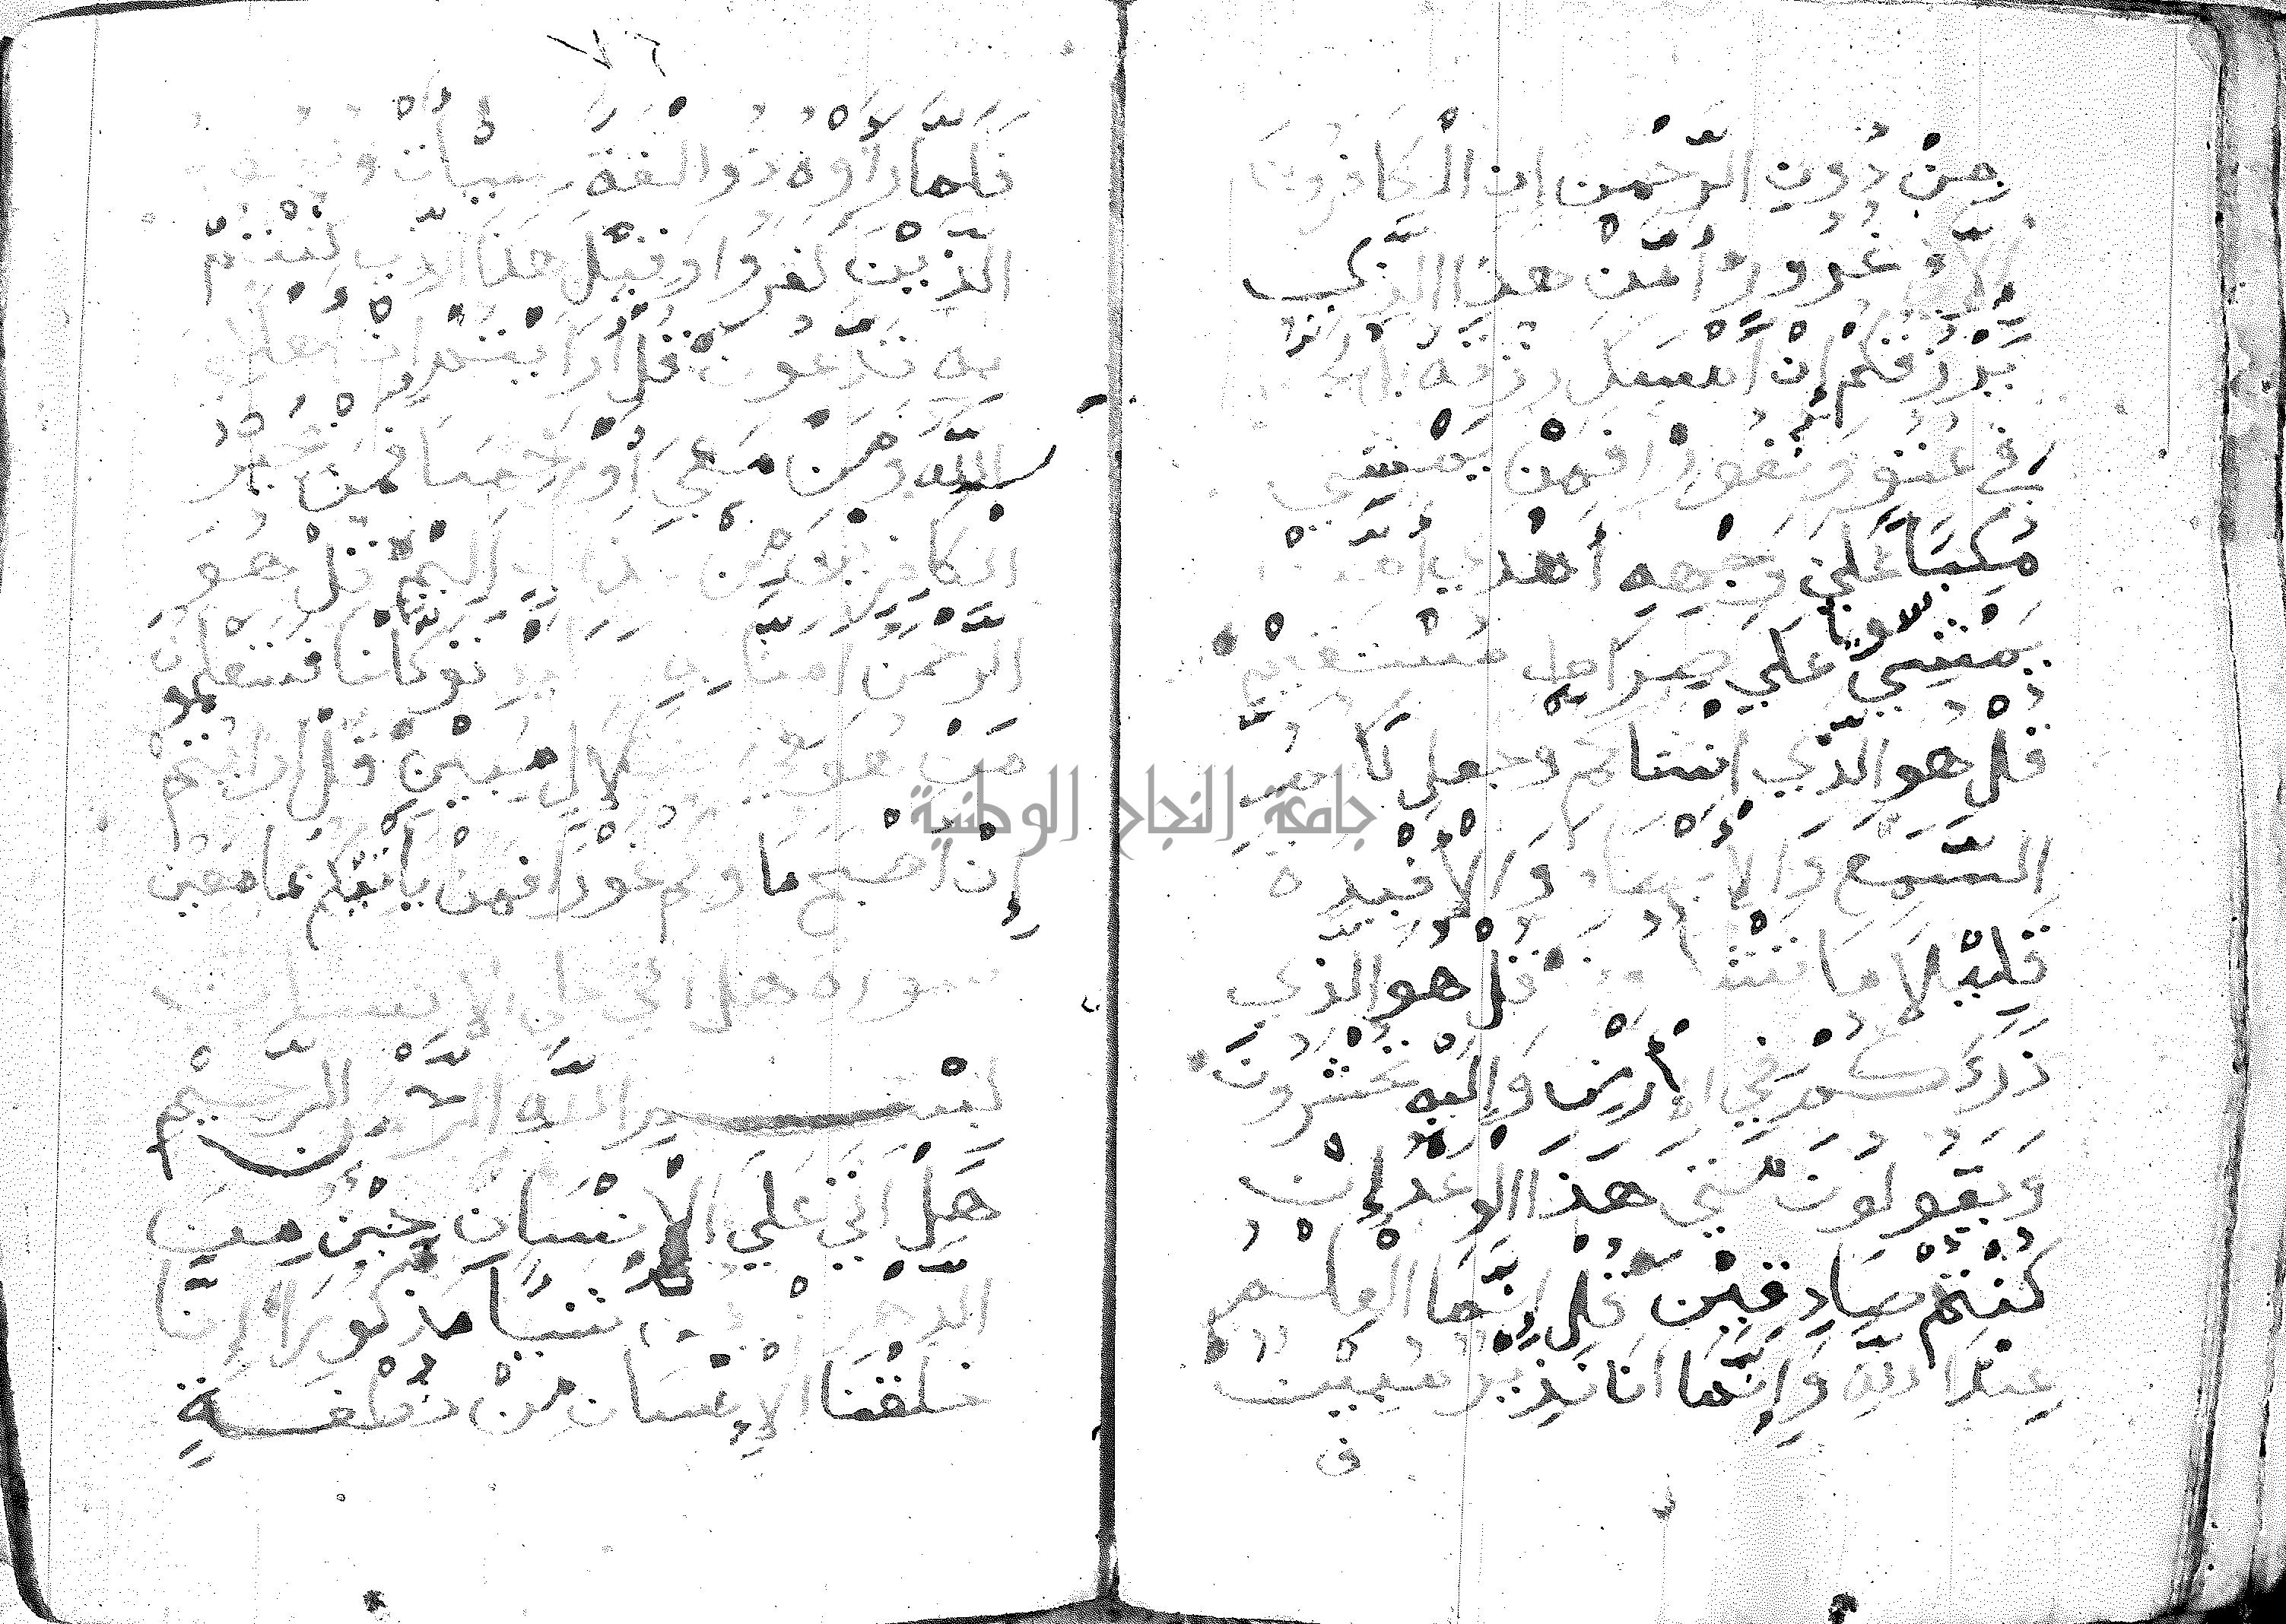 مِنْ دُونِ الرَّحْمٰنِ إِنِ الْكَافِرُونَ
إِلَّا فِي غُرُورٍ أَمَّنْ هَذَا الَّذِي
يَرْزُقُكُمْ إِنْ أَمْسَكَ رِزْقَهُ بَلْ لَجُّوا
فِي عُتُوٍّ وَنُفُورٍ أَفَمَنْ يَمْشِي
مُكِبًّا عَلَى وَجْهِهِ أَهْدَى أَمَّنْ
يَمْشِي سويا عَلَى صِرَاطٍ مُسْتَقِيمٍ
قُلْ هُوَ الَّذِي انشاكم وَجَعَلَ لَكُمُ
السَّمْعَ وَالْأَبْصَارَ وَالْأَفْئِدَةَ
قَلِيلًا مَا تَشْكُرُونَ قُلْ هُوَ الَّذِي
ذَرَأَكُمْ فِي الْأَرْضِ وَإِلَيْهِ تُحْشَرُونَ
وَيَقُولُونَ مَتَى هَذَا الْوَعْدُ إِنْ
كُنْتُمْ صَادِقِيْنَ قُلْ إِنَّمَا الْعِلْمُ
عِنْدَ اللَّهِ وَإِنَّمَا أَنَا نَذِيْرٌ مُبِيْنٌ
ف
٧٦
فَلَمَّا رَأَوْهُ زُلْفَةً سِيئَتْ وُجُوهُ
الَّذِيْنَ كَفَرُوا وَقِيْلَ هَذَا الَّذِي كُنْتُمْ
بِهِ تَدَّعُونَ قُلْ أَرَأَيْتُمْ إِنْ أَهْلَكَنِيَ
اللَّهُ وَمَنْ مَعِيَ أَوْ رَحِمَنَا فَمَنْ يُجِيْرُ
الْكَافِرِيْنَ مِنْ عَذَابٍ أَلِيْمٍ قُلْ هُوَ
الرَّحْمٰنُ آمَنَّا بِهِ وَعَلَيْهِ تَوَكَّلْنَا فَسَتَعْلَمُونَ
مَنْ هُوَ فِي ضَلَالٍ مُبِيْنٍ قُلْ أَرَأَيْتُمْ
إِنْ أَصْبَحَ مَاؤُكُمْ غَوْرًا فَمَنْ يَأْتِيْكُمْ بِمَاءٍ مَعِيْنٍ
سورة هل اتى على الانسان
بِسْمِ اللَّهِ الرَّحْمٰنِ الرَّحِيْمِ
هَلْ أَتَى عَلَى الْإِنْسَانِ حِيْنٌ مِنَ
الدَّهْرِ لَمْ يَكُنْ شَيْئًا مَذْكُورًا إِنَّا
خَلَقْنَا الْإِنْسَانَ مِنْ نُطْفَةٍ
جامعة النجاح الوطنية